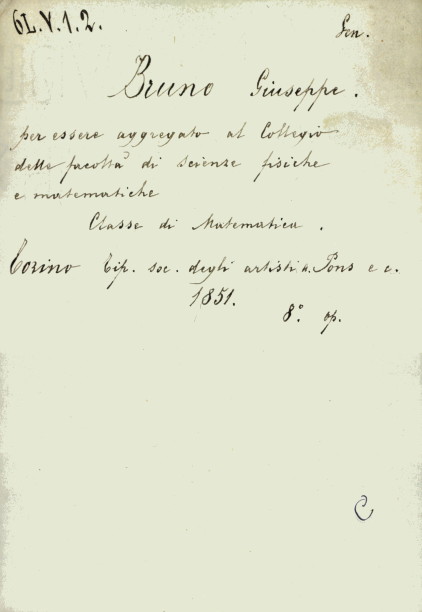 6L.V.1.2.
Bruno Giuseppe.
per essere aggregato al Collegio
delle facoltà di scienze fisiche
e matematiche
Classe di Matematica.
Torino Tip. soc. degli artisti A. Pons e c.
1851.
8.° op.
C